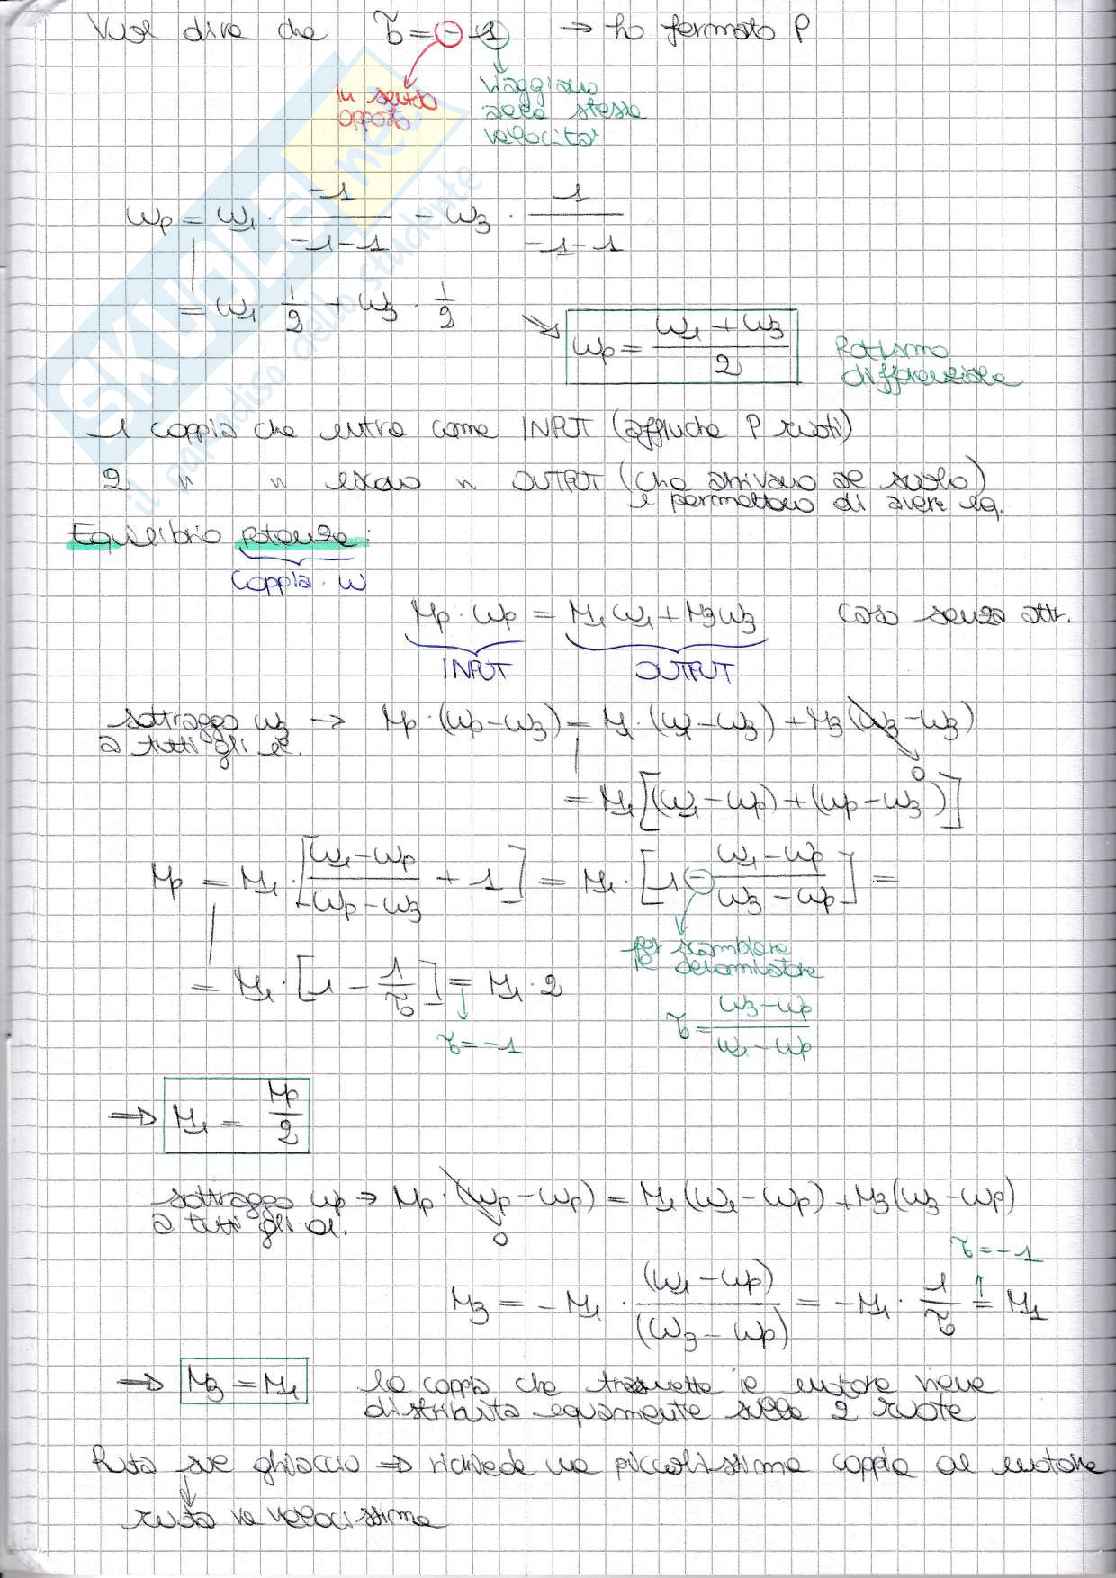 Vuol dire che τ0 = -1 → ho fermato P
in senso opposto
viaggiano alla stessa velocità
ωp = ω1 · -1/(-1-1) - ω3 · 1/(-1-1)
= ω1 · 1/2 + ω3 · 1/2
ωp = (ω1 + ω3)/2
Rotismo differenziale
1 coppia che entra come INPUT (affinché P ruoti)
2 " " escono " OUTPUT (che arrivano al suolo)
e permettono di avere eq.
Equilibrio potenze:
Coppia · ω
Mp · ωp = M1ω1 + M3ω3 caso senza attr.
INPUT OUTPUT
sottraggo ω3 → Mp · (ωp - ω3) = M1 (ω1 - ω3) + M3 (ω3 - ω3)
a tutti gli el.
0
= M1 [(ω1 - ωp) + (ωp - ω3)]
Mp = M1 · [(ω1 - ωp)/(ωp - ω3) + 1] = M1 · [1 - (ω1 - ωp)/(ω3 - ωp)] =
per scambiare il denominatore
= M1 · [1 - 1/τ0] = M1 · 2
τ0 = -1
τ0 = (ω3 - ωp)/(ω1 - ωp)
⇒ M1 = Mp/2
sottraggo ωp → Mp · (ωp - ωp) = M1 (ω1 - ωp) + M3 (ω3 - ωp)
a tutti gli el.
0
τ0 = -1
M3 = - M1 · (ω1 - ωp)/(ω3 - ωp) = - M1 · 1/τ0 = M1
⇒ M3 = M1 la coppia che trasmette il motore viene
distribuita equamente sulle 2 ruote
Ruota sul ghiaccio ⇒ richiede una piccolissima coppia al motore
ruota va velocissima
SKUOLA.net
il paradiso dello studente